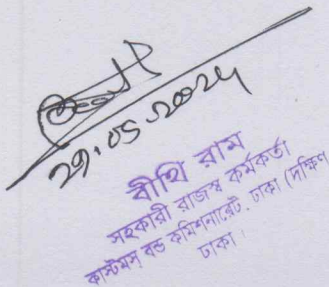 29.05.2024
বীথি রাম
সহকারী রাজস্ব কর্মকর্তা
কাস্টমস বন্ড কমিশনারেট, ঢাকা (দক্ষিণ
ঢাকা।